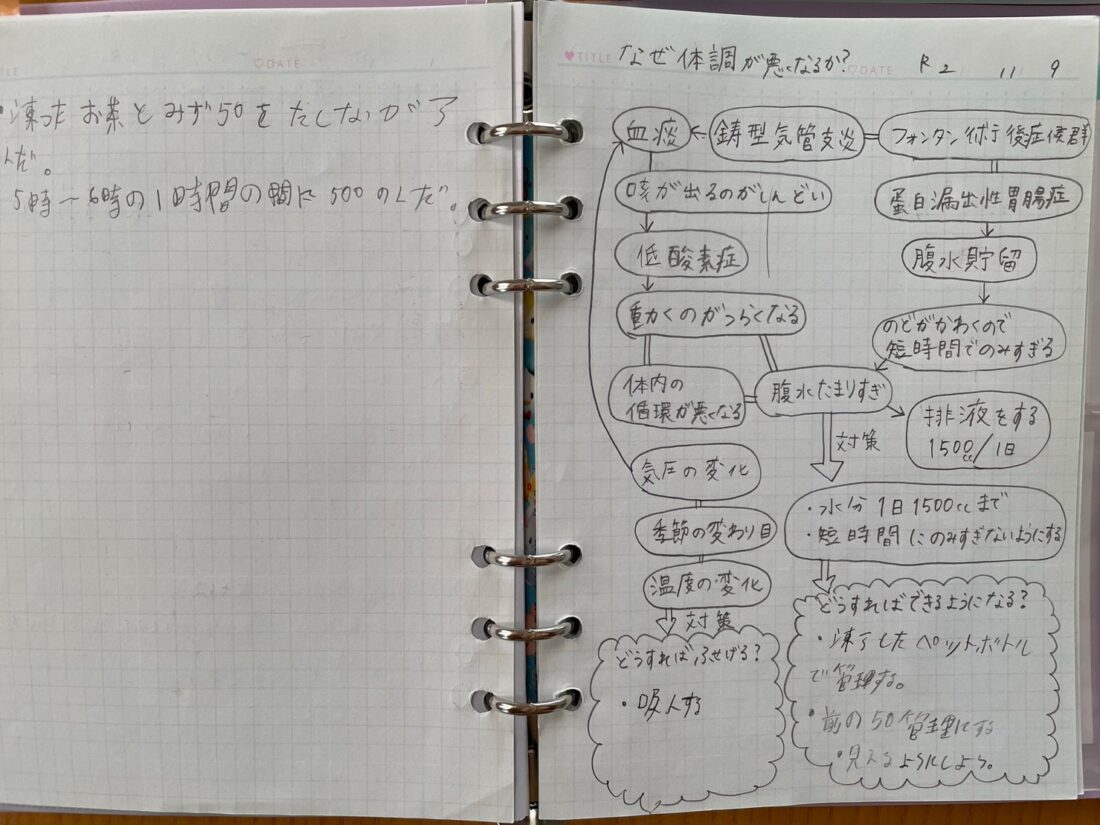 ・凍ったお茶とみず50をたしないがて
んだ。
5時〜6時の1時間の間に500のんだ。
TITLE
DATE
TITLE なぜ体調が悪くなるか? DATE R2 11 9
血痰
鋳型気管支炎
フォンタン術后後症候群
咳が出るのがしんどい
蛋白漏出性胃腸症
低酸素症
腹水貯留
動かくのがつらくなる
のどがかわくので
短時間でのみすぎる
体内の
循環が悪くなる
腹水たまりすぎ
排液をする
1500cc/1日
対策
気圧の変化
・水分1日1500ccまで
・短時間にのみすぎないようにする
季節の変わり目
温度の変化
対策
どうすればふせげる?
・吸入する
どうすればできるようになる?
・凍らしたペットボトル
で管理する。
・前の50管理にする
・見えるようにしよう。